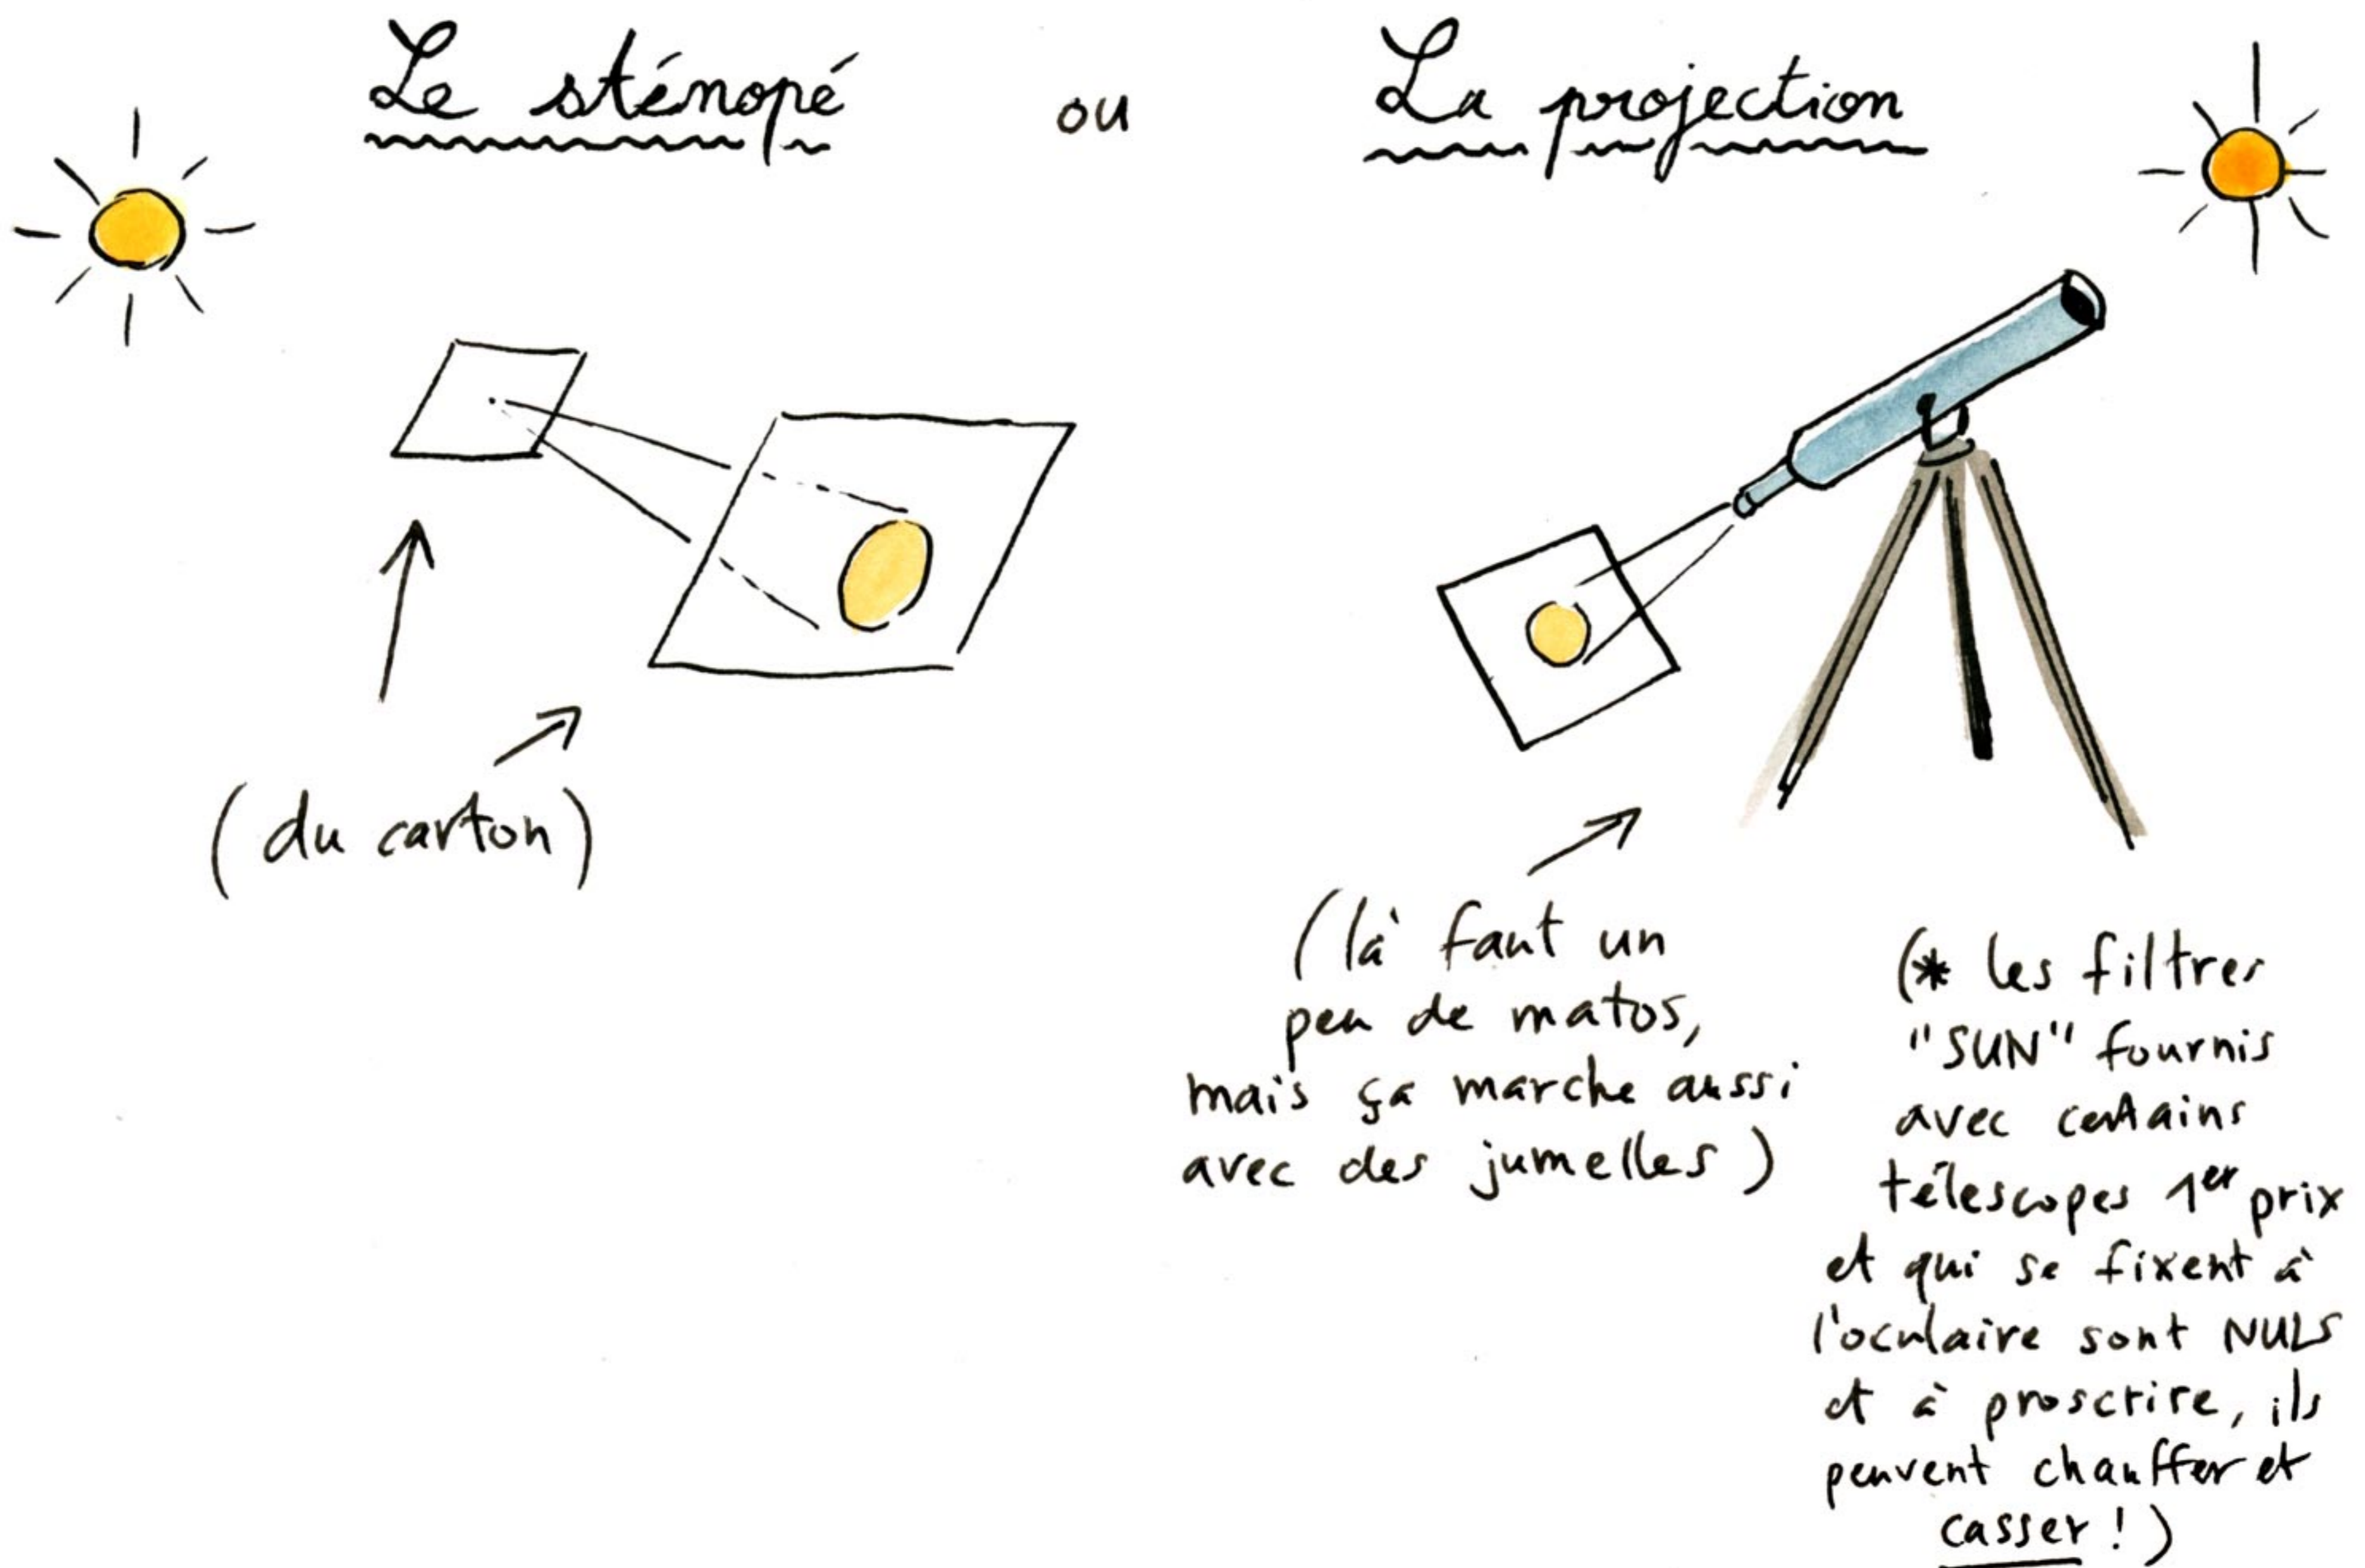 Le sténopé ou La projection
(du carton)
(là faut un
peu de matos,
mais ça marche aussi
avec des jumelles)
(* les filtres
"SUN" fournis
avec certains
télescopes 1er prix
et qui se fixent à
l'oculaire sont NULS
et à proscrire, ils
peuvent chauffer et
casser !)